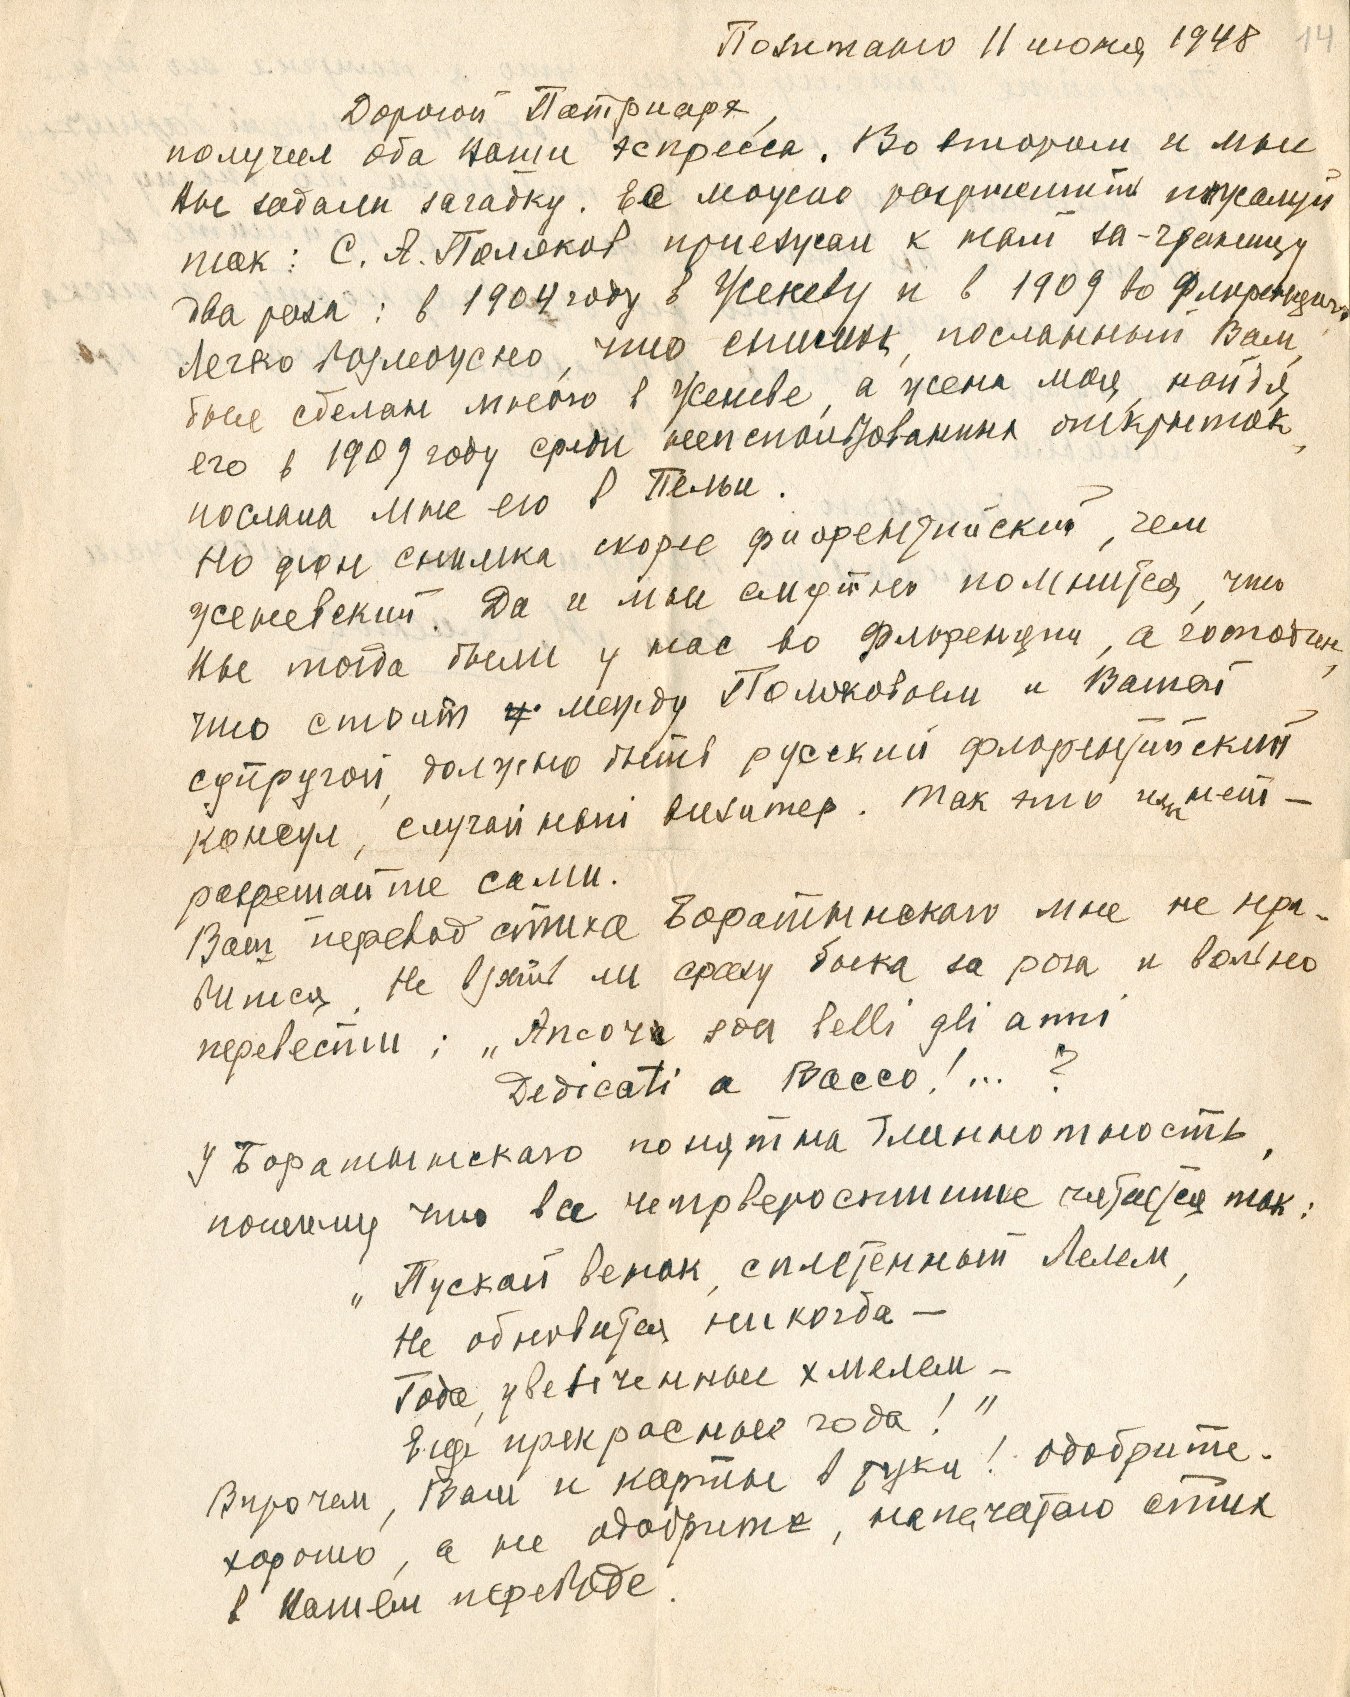 Позитано 11 июня 1948 14
Дорогой Патриарх,
получил оба Ваши экспресса. Во втором и мне
Вы задали загадку. Ее можно разрешить пожалуй
так: С. А. Поляков приезжал к нам за-границу
два раза: в 1904 году в Женеву и в 1909 во Флоренцию.
Легко возможно, что снимок, посланный Вам,
был сделан мною в Женеве, а жена моя, найдя
его в 1909 году среди неиспользованных открыток,
послала мне его в Пельи.
Но фон снимка скорее флорентийский, чем
женевский. Да и мне смутно помнится, что
Вы тогда были у нас во Флоренции, а господин,
что стоит между Поляковым и Вашей
супругой, должно быть русский флорентийский
консул, случайный визитер. Так это или нет —
разрешайте сами.
Ваш перевод стиха Боратынскаго мне не нра-
вится. Не взять ли сразу быка за рога и вольно
перевести: „Ancora son belli gli anni
Dedicati a Bacco!... ?
У Боратынскаго понятна длиннотность,
потому что все четверостишие читается так:
„Пускай венок, сплетенный Лелем,
Не обновится никогда —
Года, увенченные хмелем —
Еще прекрасные года!"
Впрочем, Вам и карты в руки! Одобрите -
хорошо, а не одобрите, напечатаю стих
в Вашем переводе.